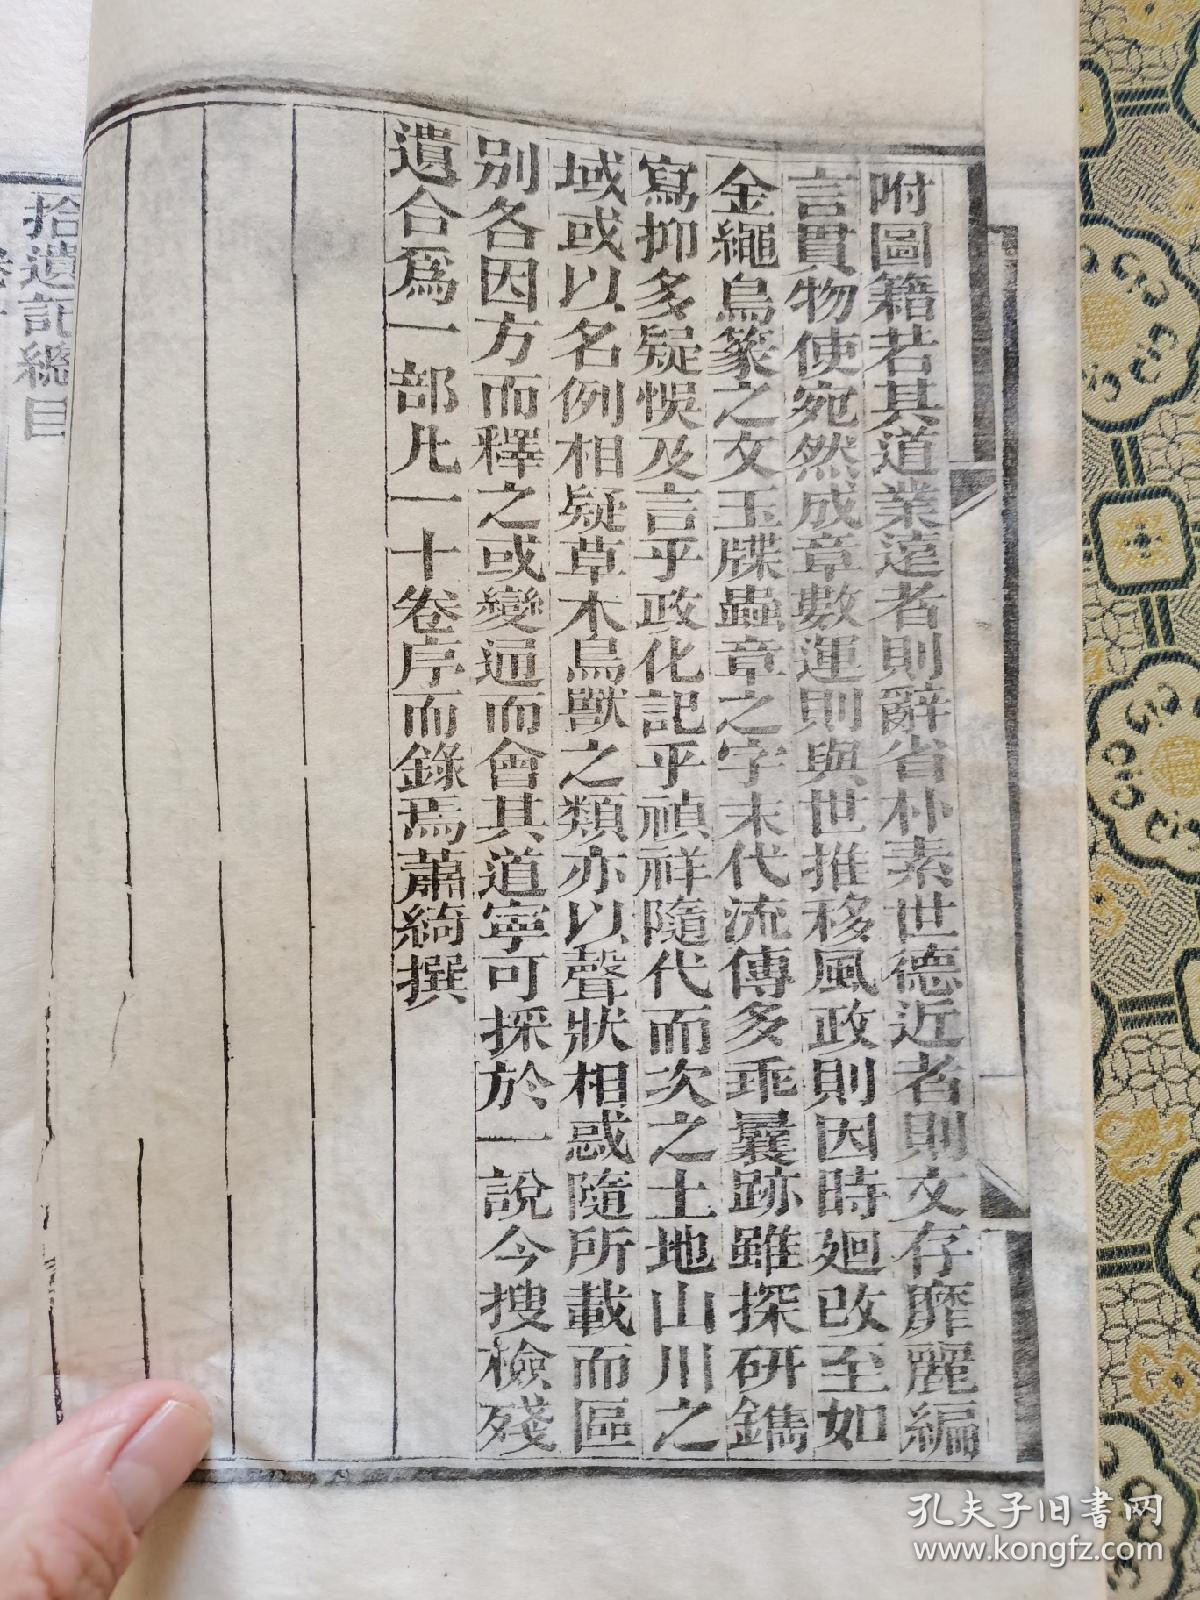 附圖籍若其道業遠者則辭省朴素世德近者則文存靡麗編
言貫物使宛然成章數運則與世推移風政則因時廻改至如
金繩鳥篆之文玉牒蟲章之字末代流傳多乖曩跡雖探研鐫
寫抑多疑悞及言乎政化記乎禎祥隨代而次之土地山川之
域或以名例相疑草木鳥獸之類亦以聲狀相惑隨所載而區
別各因方而釋之或變通而會其道寧可採於一說今搜檢殘
遺合爲一部凡一十卷序而錄焉蕭綺撰
拾遺記總目
孔夫子旧书网
www.kongfz.com